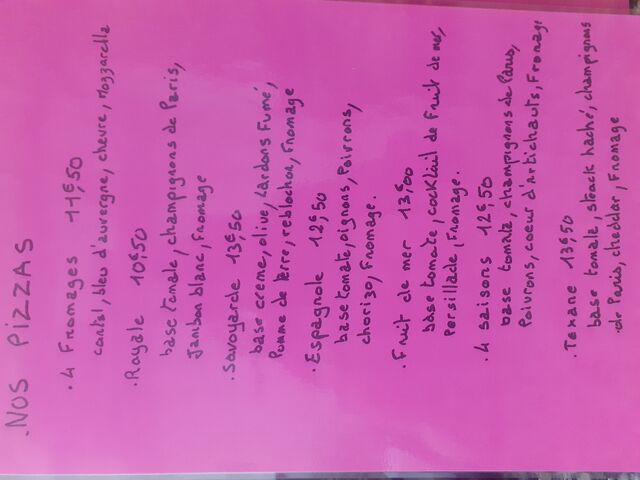 .NOS PIZZAS
. 4 Fromages 11€,50
cantal, bleu d'auvergne, chevre, mozzarella
. Royale 10€,50
base tomate, champignons de Paris,
Jambon blanc, Fromage
. Savoyarde 13€,50
base creme, olive, lardons Fumé,
Pomme de terre, reblochon, Fromage
. Espagnole 12€,50
base tomate, oignons, Poivrons,
chorizo, Fromage.
. Fruit de mer 13€,00
base tomate, cocktail de Fruit de mer,
Persillade, Fromage.
. 4 saisons 12€,50
base tomate, champignons de Paris,
Poivrons, coeur d'artichauts, Fromage
. Texane 13€,50
base tomate, steack haché, champignons
de Paris, cheddar, Fromage